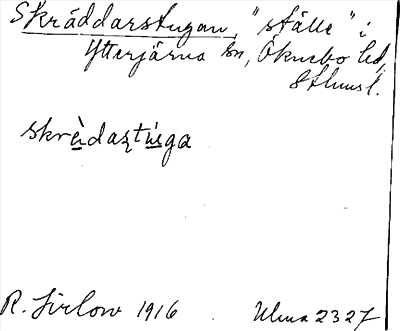 Skräddarstugan, "ställe" i
Ytterjärna sn, Öknebo hd,
Sthmsl.
skrèdaṣtùsga
R. Jirlow 1916 Ulma 2327